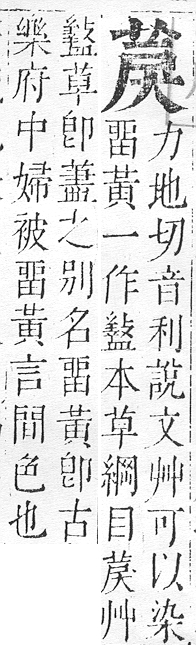 䓞
力地切音利說文艸可以染
畱黃一作盭本草綱目䓞艸
盭草卽藎之別名畱黃卽古
樂府中婦被畱黃言間色也